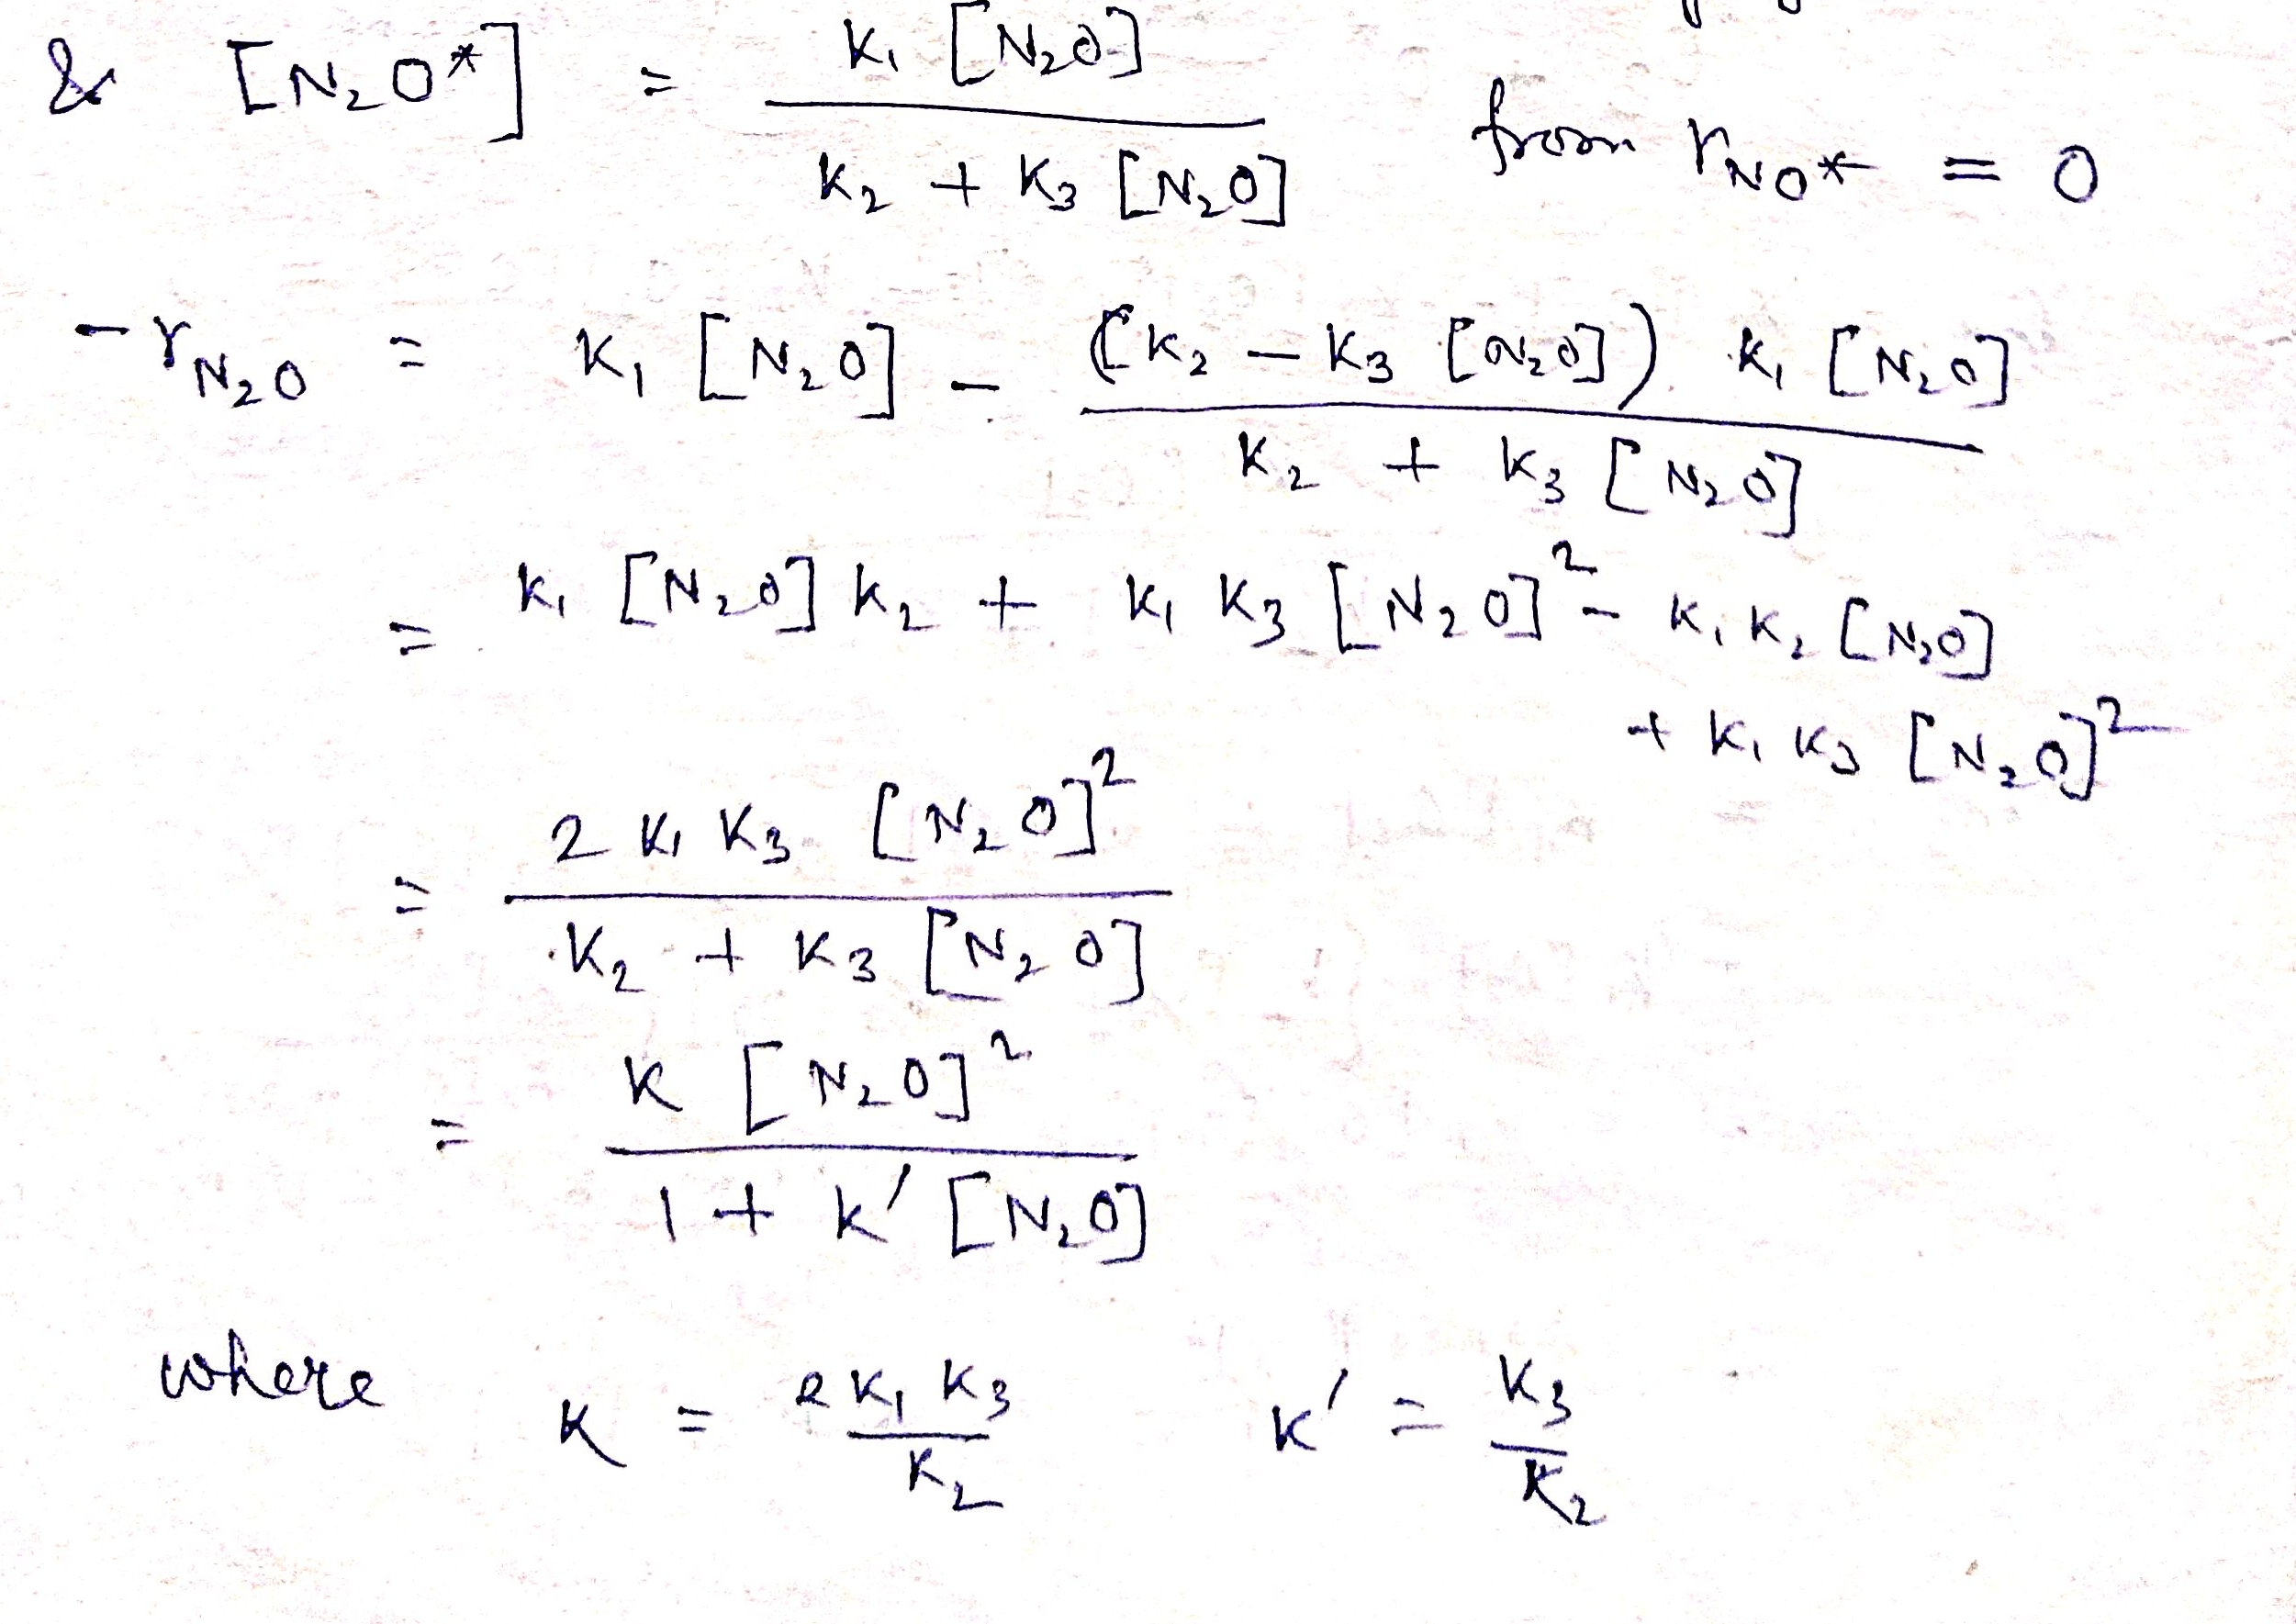 & [N₂O*] = K₁ [N₂O] / K₂ + K₃ [N₂O] from rNO* = 0
- rN₂O = K₁ [N₂O] - (K₂ - K₃ [N₂O]) K₁ [N₂O] / K₂ + K₃ [N₂O]
= K₁ [N₂O] K₂ + K₁ K₃ [N₂O]² - K₁ K₂ [N₂O]
+ K₁ K₃ [N₂O]²
= 2 K₁ K₃ [N₂O]² / K₂ + K₃ [N₂O]
= K [N₂O]² / 1 + K′ [N₂O]
where K = 2 K₁ K₃ / K₂ K′ = K₃ / K₂